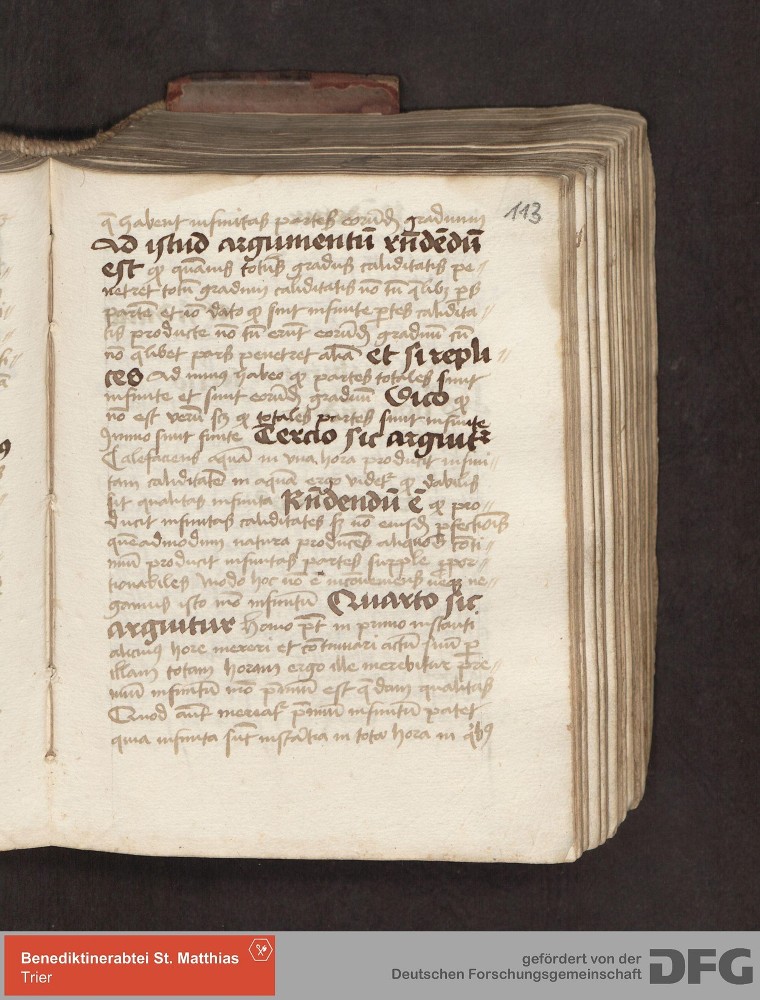 113
q̄ habent infinitas partes eorūdē graduum
Ad istud argumentū rn̄dēdū
est qͥ quāuis totus gradus caliditatis pe-
netret totū gradum caliditatis nō tn̄ qͥlibꝫ ps
partē et iō dato qͥ sint infinite ptes calidita-
tis producte nō tn̄ erūt eorūdē graduū cū
nō qͥlibet pars penetret aliā et si repli-
ces Ad minus habeo qͥ partes totales sunt
infinite et sunt eorūdē graduum Dico qͥ
nō est verū sꝫ qͥ totales partes sunt infinite
Immo sunt finite Tercio sic arguitr
Calefaciens aquā in vna hora producit infini-
tam caliditatē in aqua ergo videtr qͥ dabilis
sit qualitas infinita Rn̄dendū ē qͥ pro-
ducit infinitas caliditates sꝫ nō eiusdē pfectiōis
quēadmodum natura producēs aliquod cōti-
nuū producit infinitas partes supple ꝓpor-
tionabiles modo hoc nō ē incōueniens neqꝫ ne-
gamus isto mō infinitū Quarto sic
arguitur Homo pt̄ in primo instanti
alicuius hore mereri et cōtinuari actū suū p
illam totam horam ergo ille merebitur pre-
mium infinitū mō p̄miū est q̄dam qualitas
Quod aūt mereatr p̄miū infinitū patet
quia infinita sūt instātia in tota hora in qͥbꝰ
Benediktinerabtei St. Matthias
Trier
gefördert von der
Deutschen Forschungsgemeinschaft
DFG